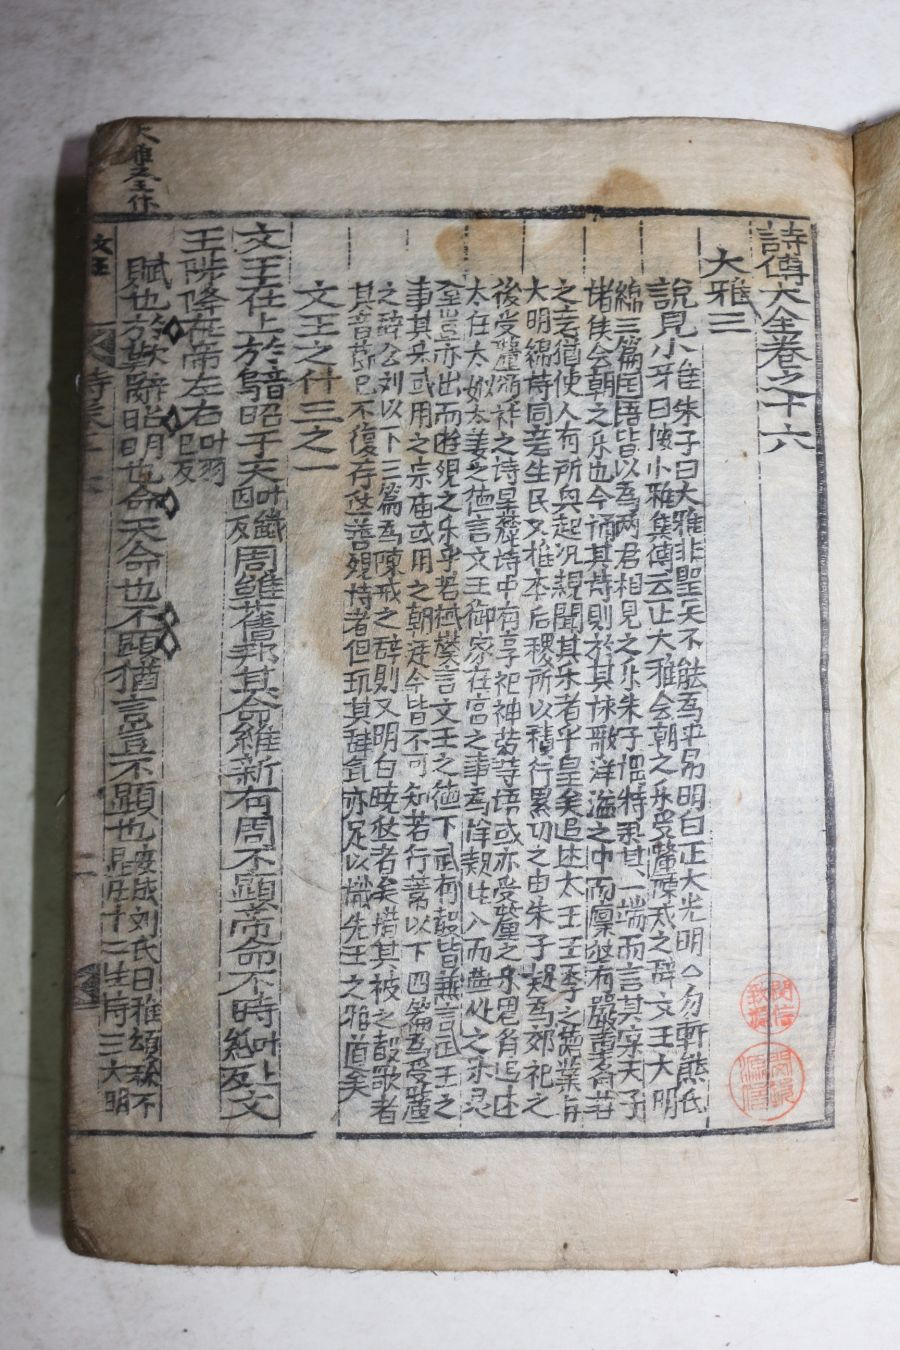 詩傳大全卷之十六
大雅三
說見小雅朱子曰大雅非聖天不能爲乎易明白正大光明勿軒熊氏
詩曰變小雅集傳云正大雅會朝之樂受釐陳戒之辭文王大明
緜三篇国语皆以爲兩君相見之乐朱子惧特果其一端而言其宗天子
诸侯会朝之乐也今诵其詩則於其詠歌洋溢之中而凛然有嚴重斎莊
之意猶使人有所興起况親聞其乐者乎皇矣追述太王王季之德業
大明緜詩同意生民又推本后稷所以積行累功之由朱子疑爲郊祀之
後受釐頒祚之诗旱麓诗中有享祀神劳等语或亦受釐之乐思齊追述
太任太姒太姜之德言文王御家在宮之事
至豈亦出而遊观之乐乎若棫樸言文王之德下武有聲皆兼言武王之
事其乐或用之宗庙或用之朝廷今皆不可知若行葦以下四篇爲受釐
之詩公刘以下三篇爲陳戒之辞則又明白然者矣惜其被之声歌者
其音節已不復存後善观诗者但玩其辞氣亦足以識先王之雅道矣
文王之什三之一
文王在上於昭于天叶鐵因反周雖舊邦其命維新有周不顯帝命不時叶上紙反文
王陟降在帝左右叶羽已反
賦也於歎辭昭明也命天命也不顯猶言豈不顯也安成刘氏曰雅頌称不顯凡十二此诗三大明
文王